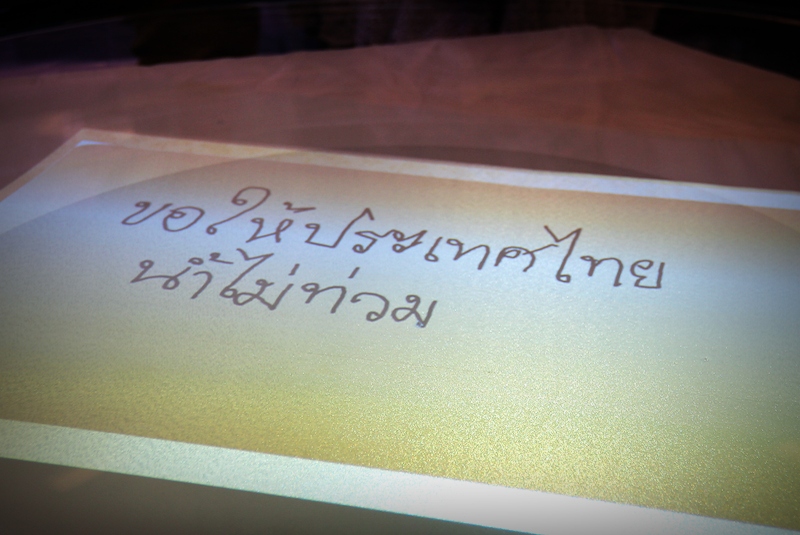 ขอให้ประเทศไทย
น้ำไม่ท่วม